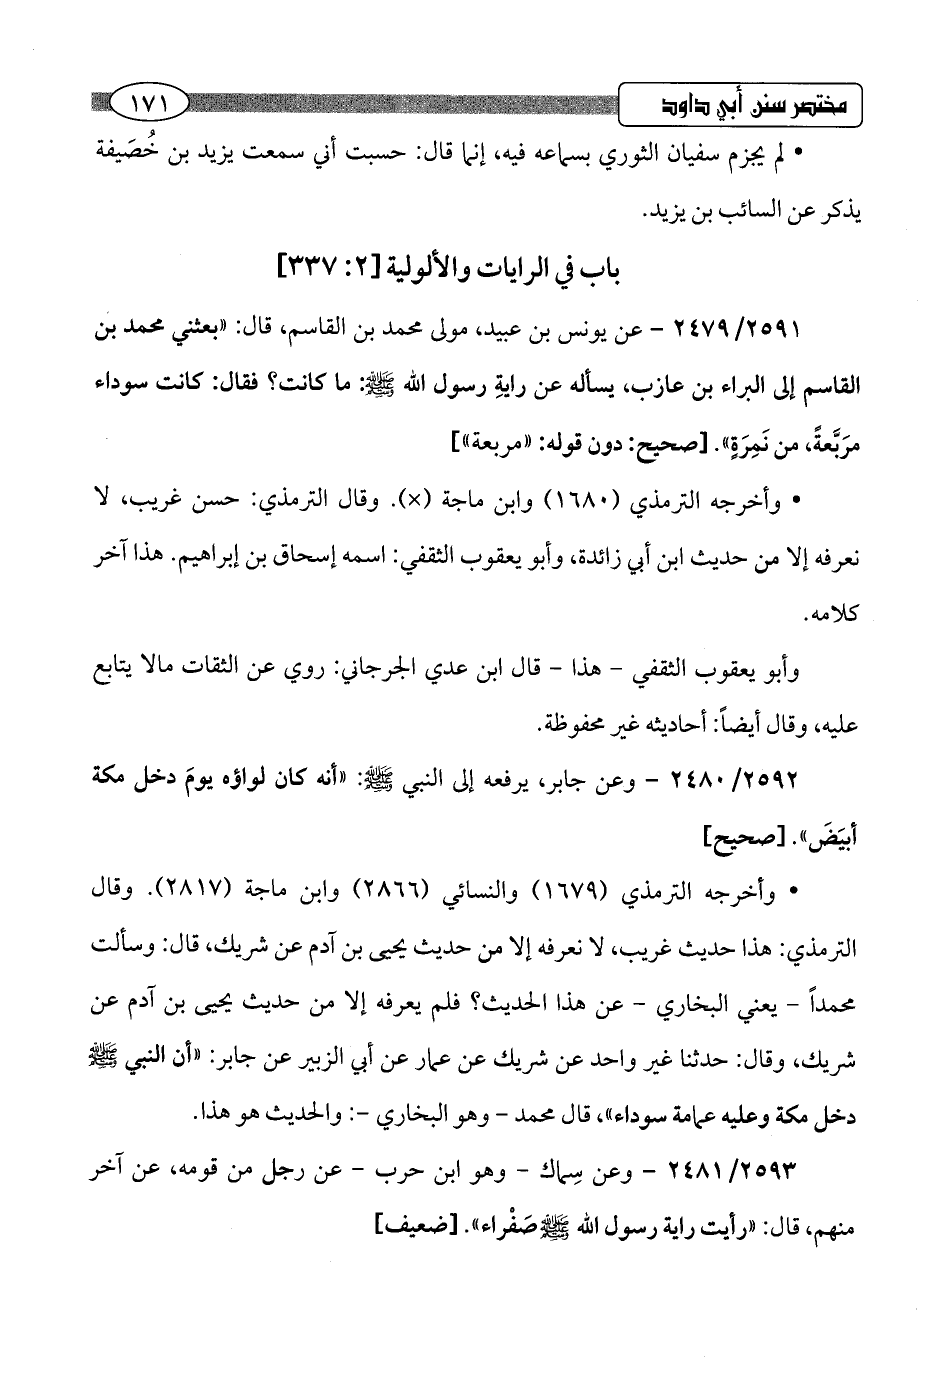 مختصر سنن أبي داود
١٧١
• لم يجزم سفيان الثوري بسماعه فيه، إنما قال: حسبت أني سمعت يزيد بن خُصَيفة
يذكر عن السائب بن يزيد.
باب في الرايات والألولية [٢: ٣٣٧]
٢٤٧٩/٢٥٩١ - عن يونس بن عبيد، مولى محمد بن القاسم، قال: «بعثني محمد بن
القاسم إلى البراء بن عازب، يسأله عن رايةِ رسول الله ﷺ: ما كانت؟ فقال: كانت سوداء
مرَبَّعةً، من نَمِرَةٍ». [صحيح: دون قوله: «مربعة»]
• وأخرجه الترمذي (١٦٨٠) وابن ماجة (×). وقال الترمذي: حسن غريب، لا
نعرفه إلا من حديث ابن أبي زائدة، وأبو يعقوب الثقفي: اسمه إسحاق بن إبراهيم. هذا آخر
كلامه.
وأبو يعقوب الثقفي - هذا - قال ابن عدي الجرجاني: روي عن الثقات مالا يتابع
عليه، وقال أيضاً: أحاديثه غير محفوظة.
٢٤٨٠/٢٥٩٢ - وعن جابر، يرفعه إلى النبي ﷺ: «أنه كان لواؤه يومَ دخل مكة
أبيَضَ». [صحيح]
• وأخرجه الترمذي (١٦٧٩) والنسائي (٢٨٦٦) وابن ماجة (٢٨١٧). وقال
الترمذي: هذا حديث غريب، لا نعرفه إلا من حديث يحيى بن آدم عن شريك، قال: وسألت
محمداً - يعني البخاري - عن هذا الحديث؟ فلم يعرفه إلا من حديث يحيى بن آدم عن
شريك، وقال: حدثنا غير واحد عن شريك عن عمار عن أبي الزبير عن جابر: «أن النبي ﷺ
دخل مكة وعليه عمامة سوداء»، قال محمد - وهو البخاري -: والحديث هو هذا.
٢٤٨١/٢٥٩٣ - وعن سِماك - وهو ابن حرب - عن رجل من قومه، عن آخر
منهم، قال: «رأيت راية رسول الله ﷺ صَفْراء». [ضعيف]